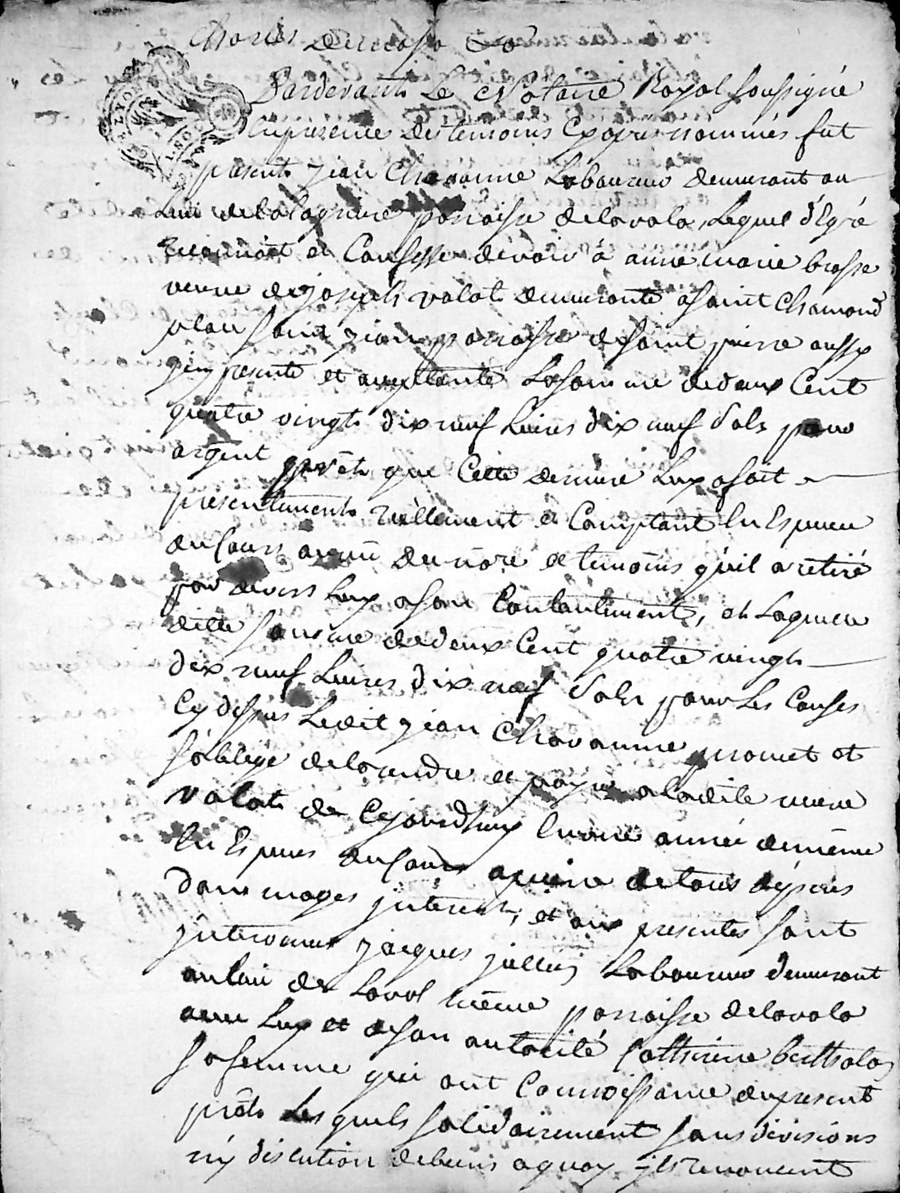 Pardevant Le Notaire Royal soussigné
En presence des temoins Cy apres nommés fut
present jean Chavanne Laboureur demeurant au
Lieu de parroisse de lavala Lequel de gré a
reconnu et Confesse devoir à anne marie brosse
veuve de joseph valat demeurante a saint Chamond
place saint jean parroisse de saint pierre aussy
jcy presente et acceptante La somme de deux Cent
quatre vingt dix neuf Livres dix neuf sols pour
argent prêté que Cette derniere Luy a fait
presentement réellement et Comptant En Espece
du Cours au vû du nore et temoins qu'il a retiré
pour devers Luy a son Contantement, et Laquelle
ditte somme de deux Cent quatre vingt
dix neuf Livres dix neuf sols pour Les Causes
Cy dessus Ledit jean Chavanne promet et
s'oblige de la rendre et payer a ladite veuve
valat de Cejourdhuy En une année de même
En Especes du Cours a peine de tous dépens
dommages jnterests, et aux presentes sont
jntervenus jacques jullien Laboureur demeurant
au lieu de même parroisse de lavala
avec Luy et de son autorité Catherine
sa femme qui ont Connoissance du present
prêt Lesquels solidairement sans division
ny discution de biens a quoy jls renoncent